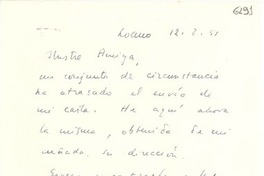 6291
Locarno 12. 2. 51
Ilustre Amiga,
un conjunto de circunstancia
ha atrasado el envío de
mi carta. He aquí ahora
la misma, obtenida de mi
cuñada, su dirección.